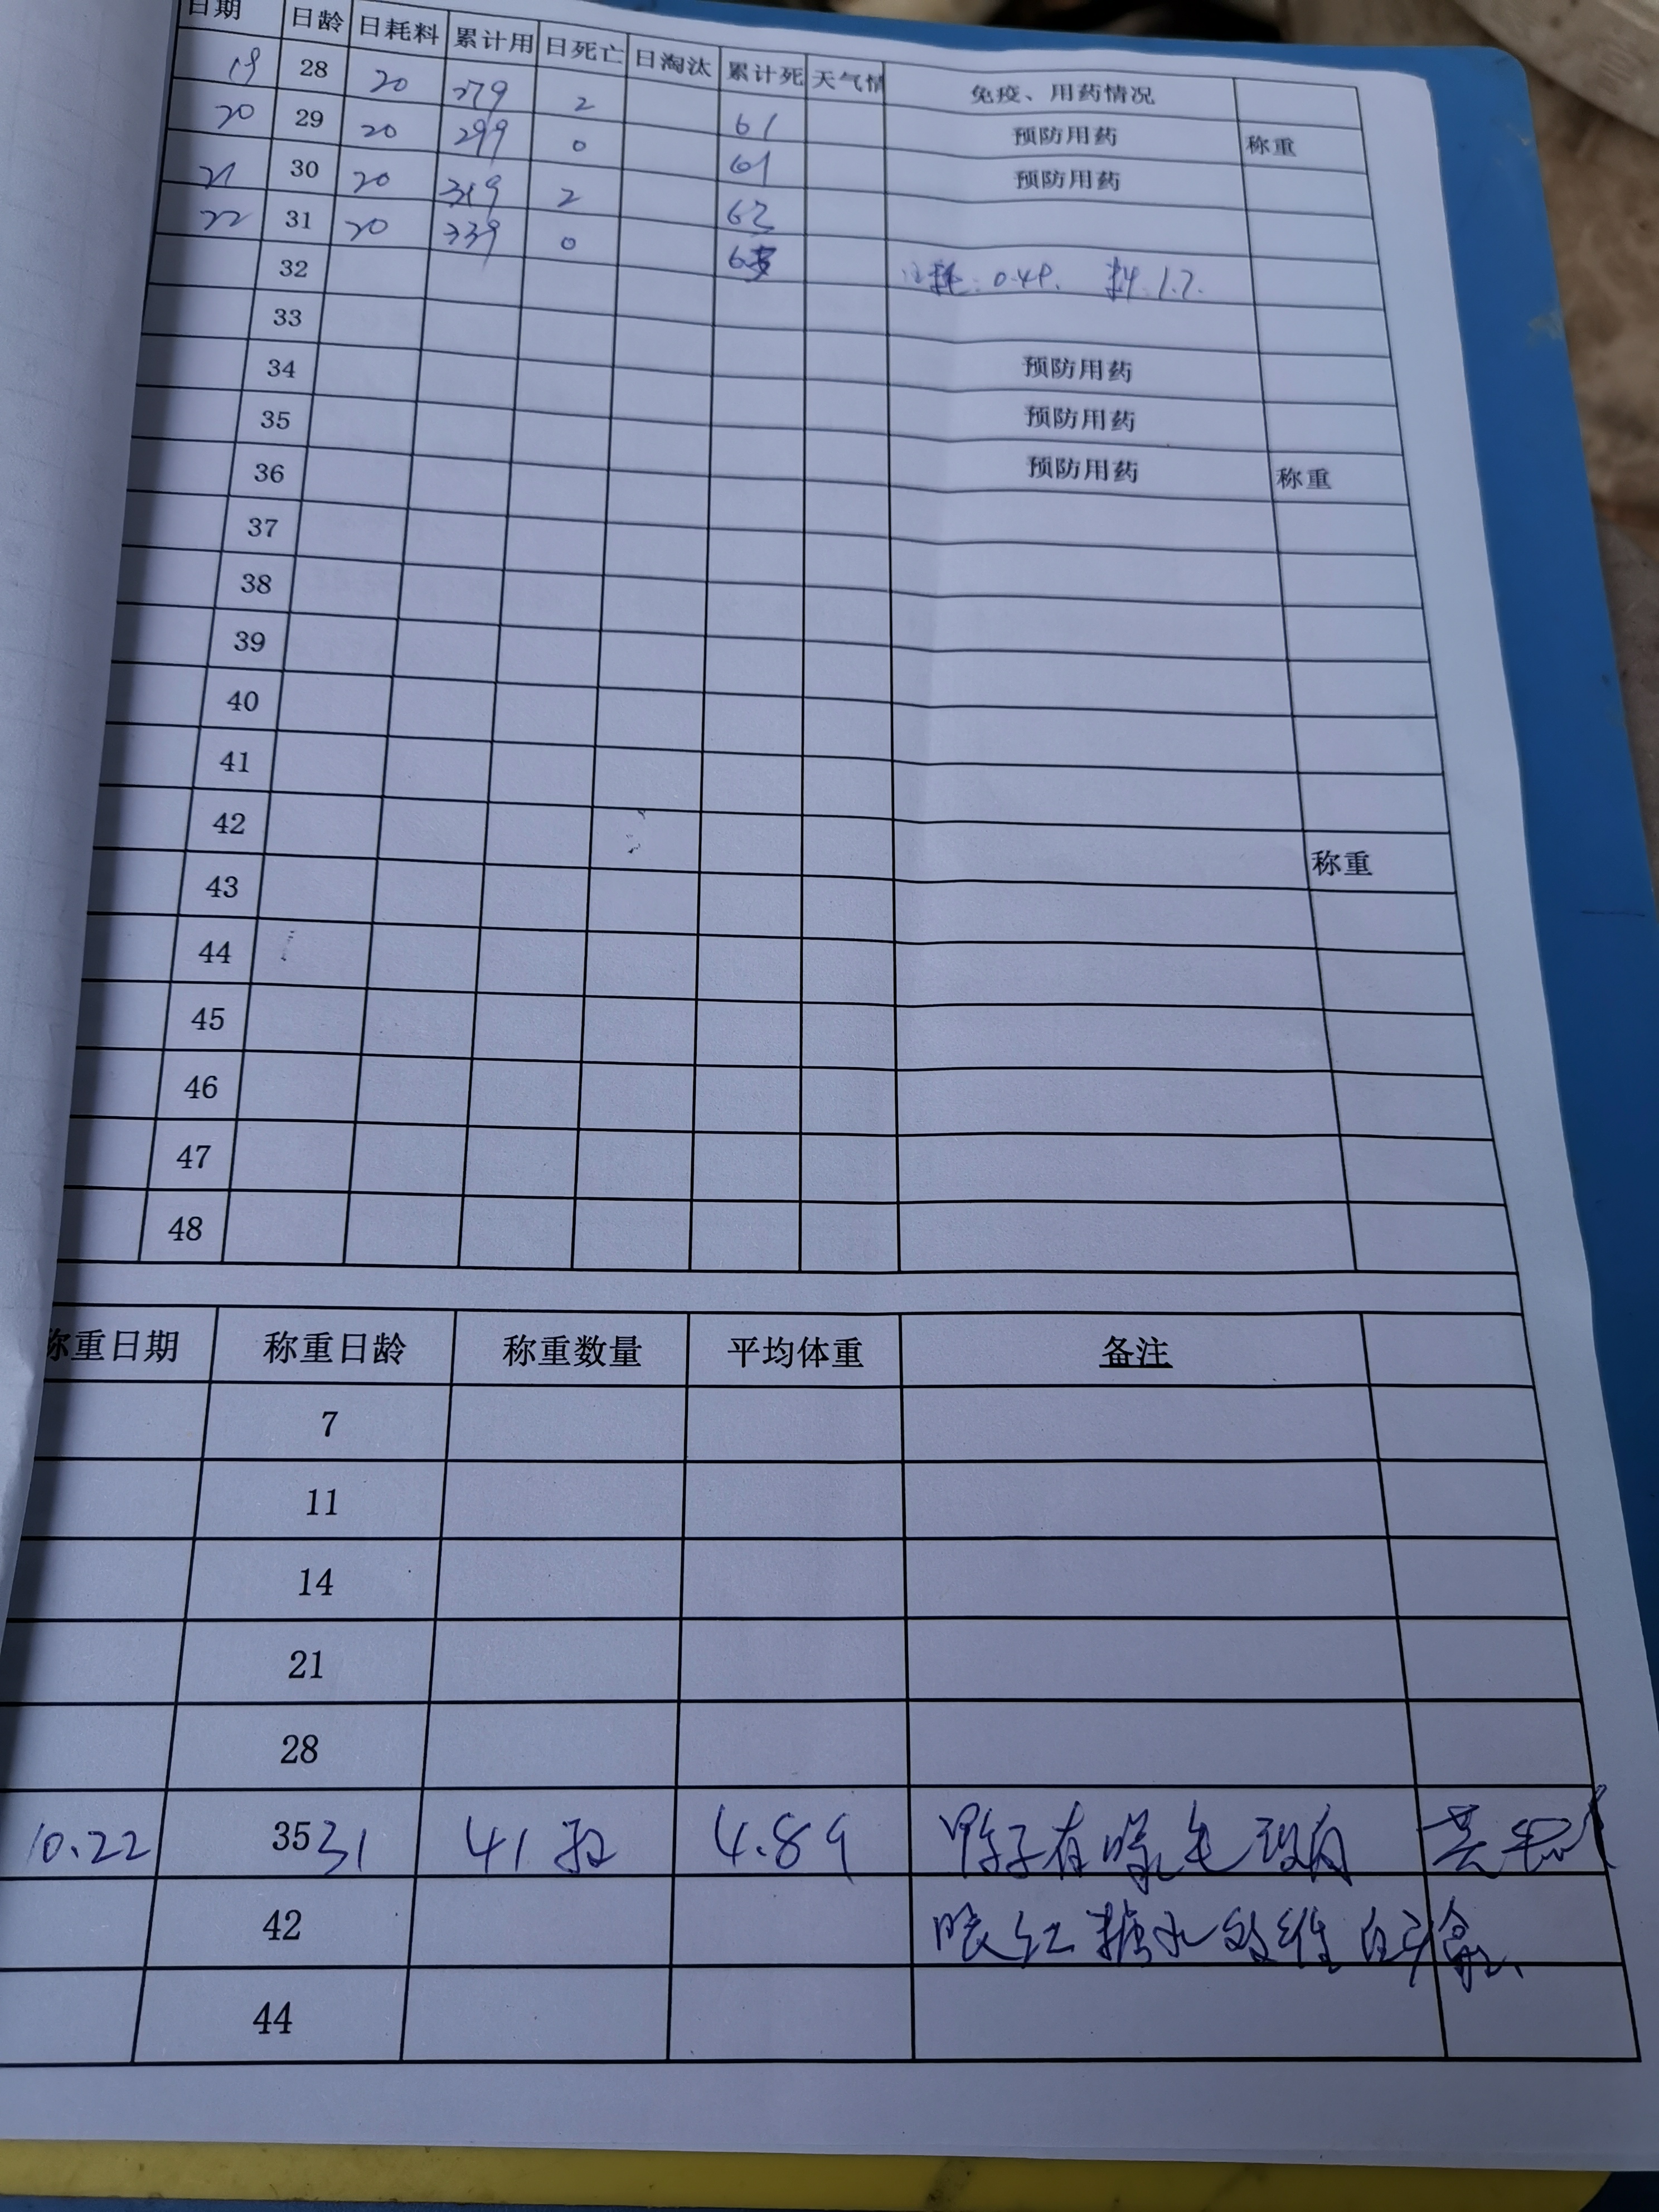 日期 日龄 日耗料 累计用 日死亡 日淘汰 累计死 天气情 免疫、用药情况
19 28 20 279 2 61
20 29 20 299 0 61 预防用药 称重
21 30 20 319 2 63 预防用药
22 31 20 339 0 63
32 料 1.7.
33
34 预防用药
35 预防用药
36 预防用药 称重
37
38
39
40
41
42
43 称重
44
45
46
47
48
称重日期 称重日龄 称重数量 平均体重 备注
7
11
14
21
28
10.22 35 31 41 4.89 鸭子有啄毛现有
42 红糖水
44